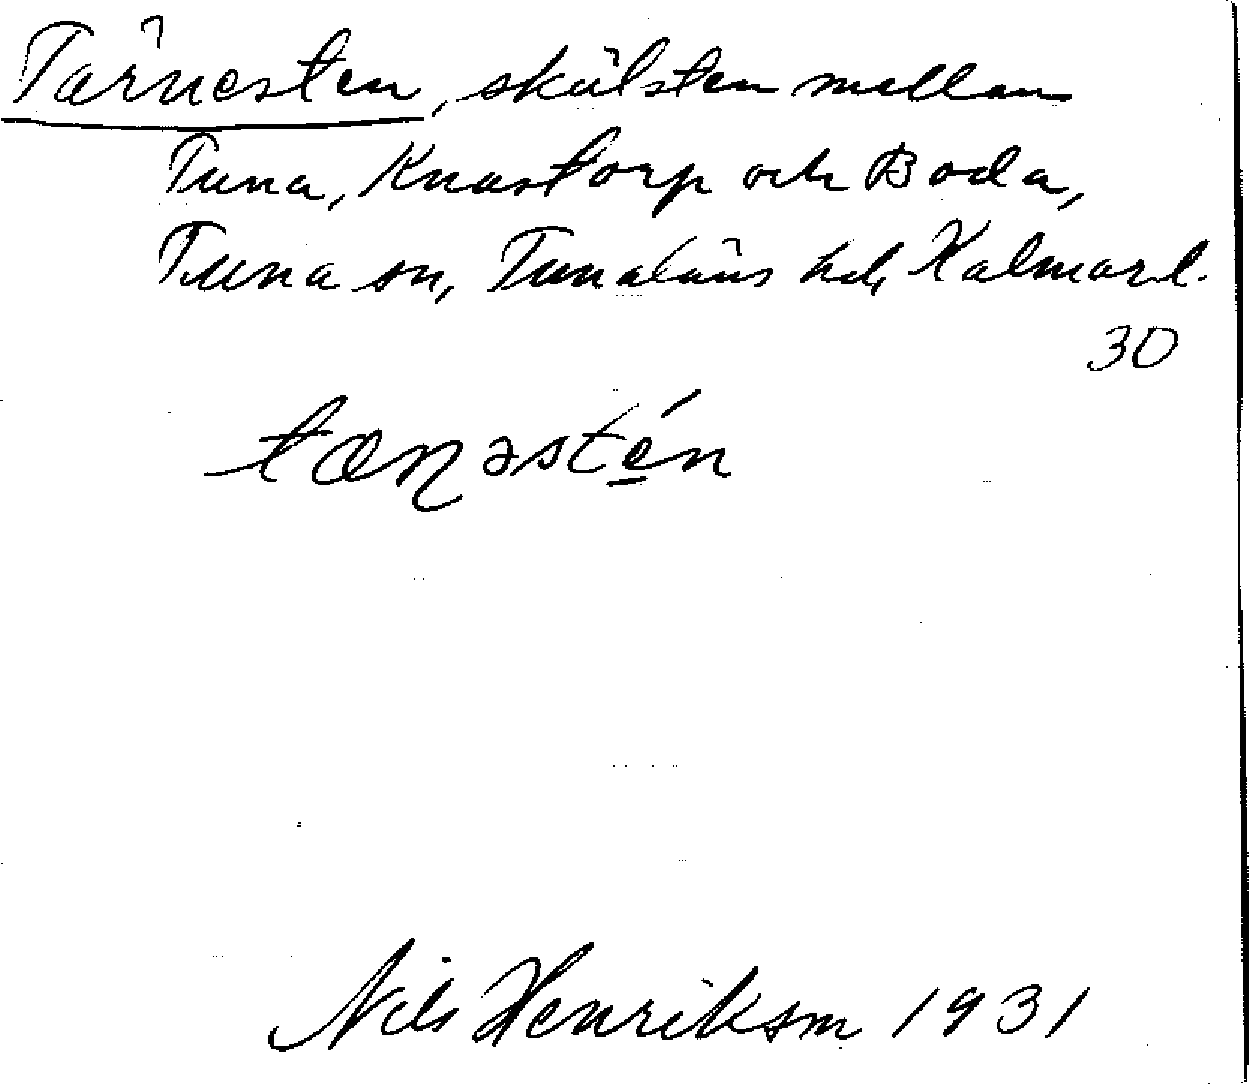 Tärnesten, skälsten mellan
Tuna, Knastorp och Boda,
Tuna sn, Tunaläns hd, Kalmar l.
30
tæɳəstén
Nils Henriksson 1931